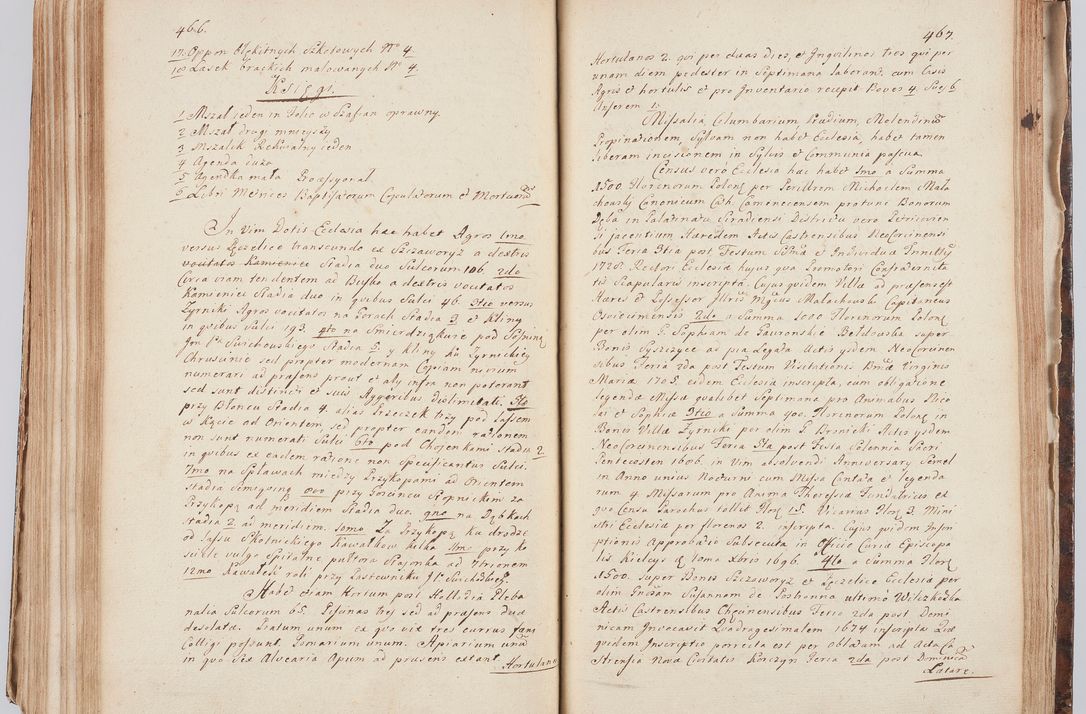 466.
17. Oppon błękitnych Szkełowych No 4.
18. Lasek brackich malowanych No 4.
Księgi.
1 Mszał ieden in Folio w Szafian oprawny.
2 Mszał drugi mnieyszy
3 Mszalik Rekwialny ieden
4 Agenda duża
5 Agendka mała
6 Libri Metrices Baptisatorum Copulatorum et Mortuorũ
In Vim Dotis Ecclesia hac habet Agros 1mo
versus Lęzelice transeundo ex Szczaworyż a dextris
vocitatos Kamieniec Stadia duo Sulcorum 106. 2do
Circa viam tendentem ad Busko a dextris vocitatos
Kamieniec Stadia duo in quibus Sulci 46. 3tio versus
Zyrniki Agros vocitatos na Gorach Stadia 3 et Kliny
in quibus Sulci 193. 4to na Smierdziąkure pod Sośniną
Jmci Pa Suschowskiego Stadia 5. y Kliny ku Zyrnickiey
Chruscinie sed propter modernam Copiam nivium
numerari ad præsens prout et aly infra non poterant
sed sunt distincti et suis Aggeribus dislimitati. 5to
przy Błoniu Stadia 4. alias Trzeciek trzy pod Lassem
w Kącie ad Orientem, sed propter eandem rationem
non sunt numerati Sulci 6to pod Chojenkami Stadia 2
in quibus ex eadem ratione non specificantur Sulci.
7mo na Spławach między Przykopami ad Orientem
Stadia Semiycina 8vo przy Goruncu Stopnickim za
Przykopą ad meridiem Stadia duo. 9no na Dąbkach
Stadia 2 ad meridiem. 10mo Za Przykopą ku drodze
od Lassu Szkotnickiego Kawałkow kilka 11mo przy ko
sciele vulgo Szpitalne pułtora Stajonka ad 7trionem
12mo Kawałek roli przy Lastewniku
Habet etiam Hortum post Hollodia Pleba
nalia Sulcorum 65. Piscinas trej sed ad præsens dua
desolata. Pratum unum ex quo vix tres currus fæni
Colligi possunt Pomarium unum. Apiarium unũ
in quo Sex Alvearia Apum ad præsens extant.
Hortulano

467.
Hortulanos 2. qui per duas dies, et Inquilinos tres qui per
unam diem pedester in Septimana laborant. cum Casis
Agris et hortulis et pro Inventario recepit Boves 4. Sues 6
Anserem 1.
Missalia Columbarium Prædium, Molendinũ
Propinationem, Sylvam non habet Ecclesia, habet tamen
liberam incisionem in Sylvis et Communia pascua.
Census vero Ecclesia hac habet 1mo a Summa
1500 Florenorum Polon per Perillrem Michaelem Mała
chowski Canonicum Cath Camenecensem protunc Bonorum
Dęba in Palatinatu Siradiensi Districtu vero Petricovien
si jacentium Hæredem Actis Castrensibus NeoCorcinensi
bus Feria 3tia post Festum Sõmæ et Individuæ Trinittis
1728. Rectori Ecclesiæ hujus qua Promotori Confraternita
tis Scapularis inscripta. Cujus quidem Villæ ad præsens est
Hæres et Possessor Illris Mgcus Małachowski Capitaneus
Oswiecimensis 2do a Summa 1000 Florenorum Polon
per olim G. Sopham de Gawronskie Bełdowska super
Bonis Syszczyce ad pia Legata Actis ysdem NeoCorcinen
sibus Feria 2da post Festum Visitationis Bmæ Virginis
Mariæ 1705. eidem Ecclesiæ inscripta, cum obligatione
legendæ Missæ qualibet Septimana pro Animabus Nico
lai et Sophiæ 3tio a Summa 900. Florenorum Polon in
Bonis Villæ Zyrniki per olim G Bronicki Actis ysdem
NeoCorcinensibus Feria 5ta post Festa Solennia Sacri
Pentecosten 1606. in Vim absolvendi Anniversary Semel
in Anno unius Nocturni cum Missa Cantata et legenda
rum 4. Missarum pro Anima Theressiæ Fundatricis ex
quo Censu Parochus tollit Flor 15. Vicarius Flor 3. Mini
stri Ecclesiæ per florenos 2. inscripta. Cujus quidem Inscri
ptionis Approbatio Subsecuta in Officio Curiæ Episcopa
lis Kielcys 10ma Xbris 1696. 4to a Summa Flor
1500. super Bonis Szczaworyż et Lęzelice Ecclesiæ per
olim Gnosam Susannam de Sostronna ultimo Wilczkoska
Actis Castrensibus Chęcinensibus Feria 2da post Domi
nicam Invocavit Quadragesimalem 1674 inscripta Quæ
quidem Inscriptio porrecta est per Oblatam ad Acta Ca
strensia Novæ Civitatis Korczyn Feria 2da post Dominicã
Lætare.